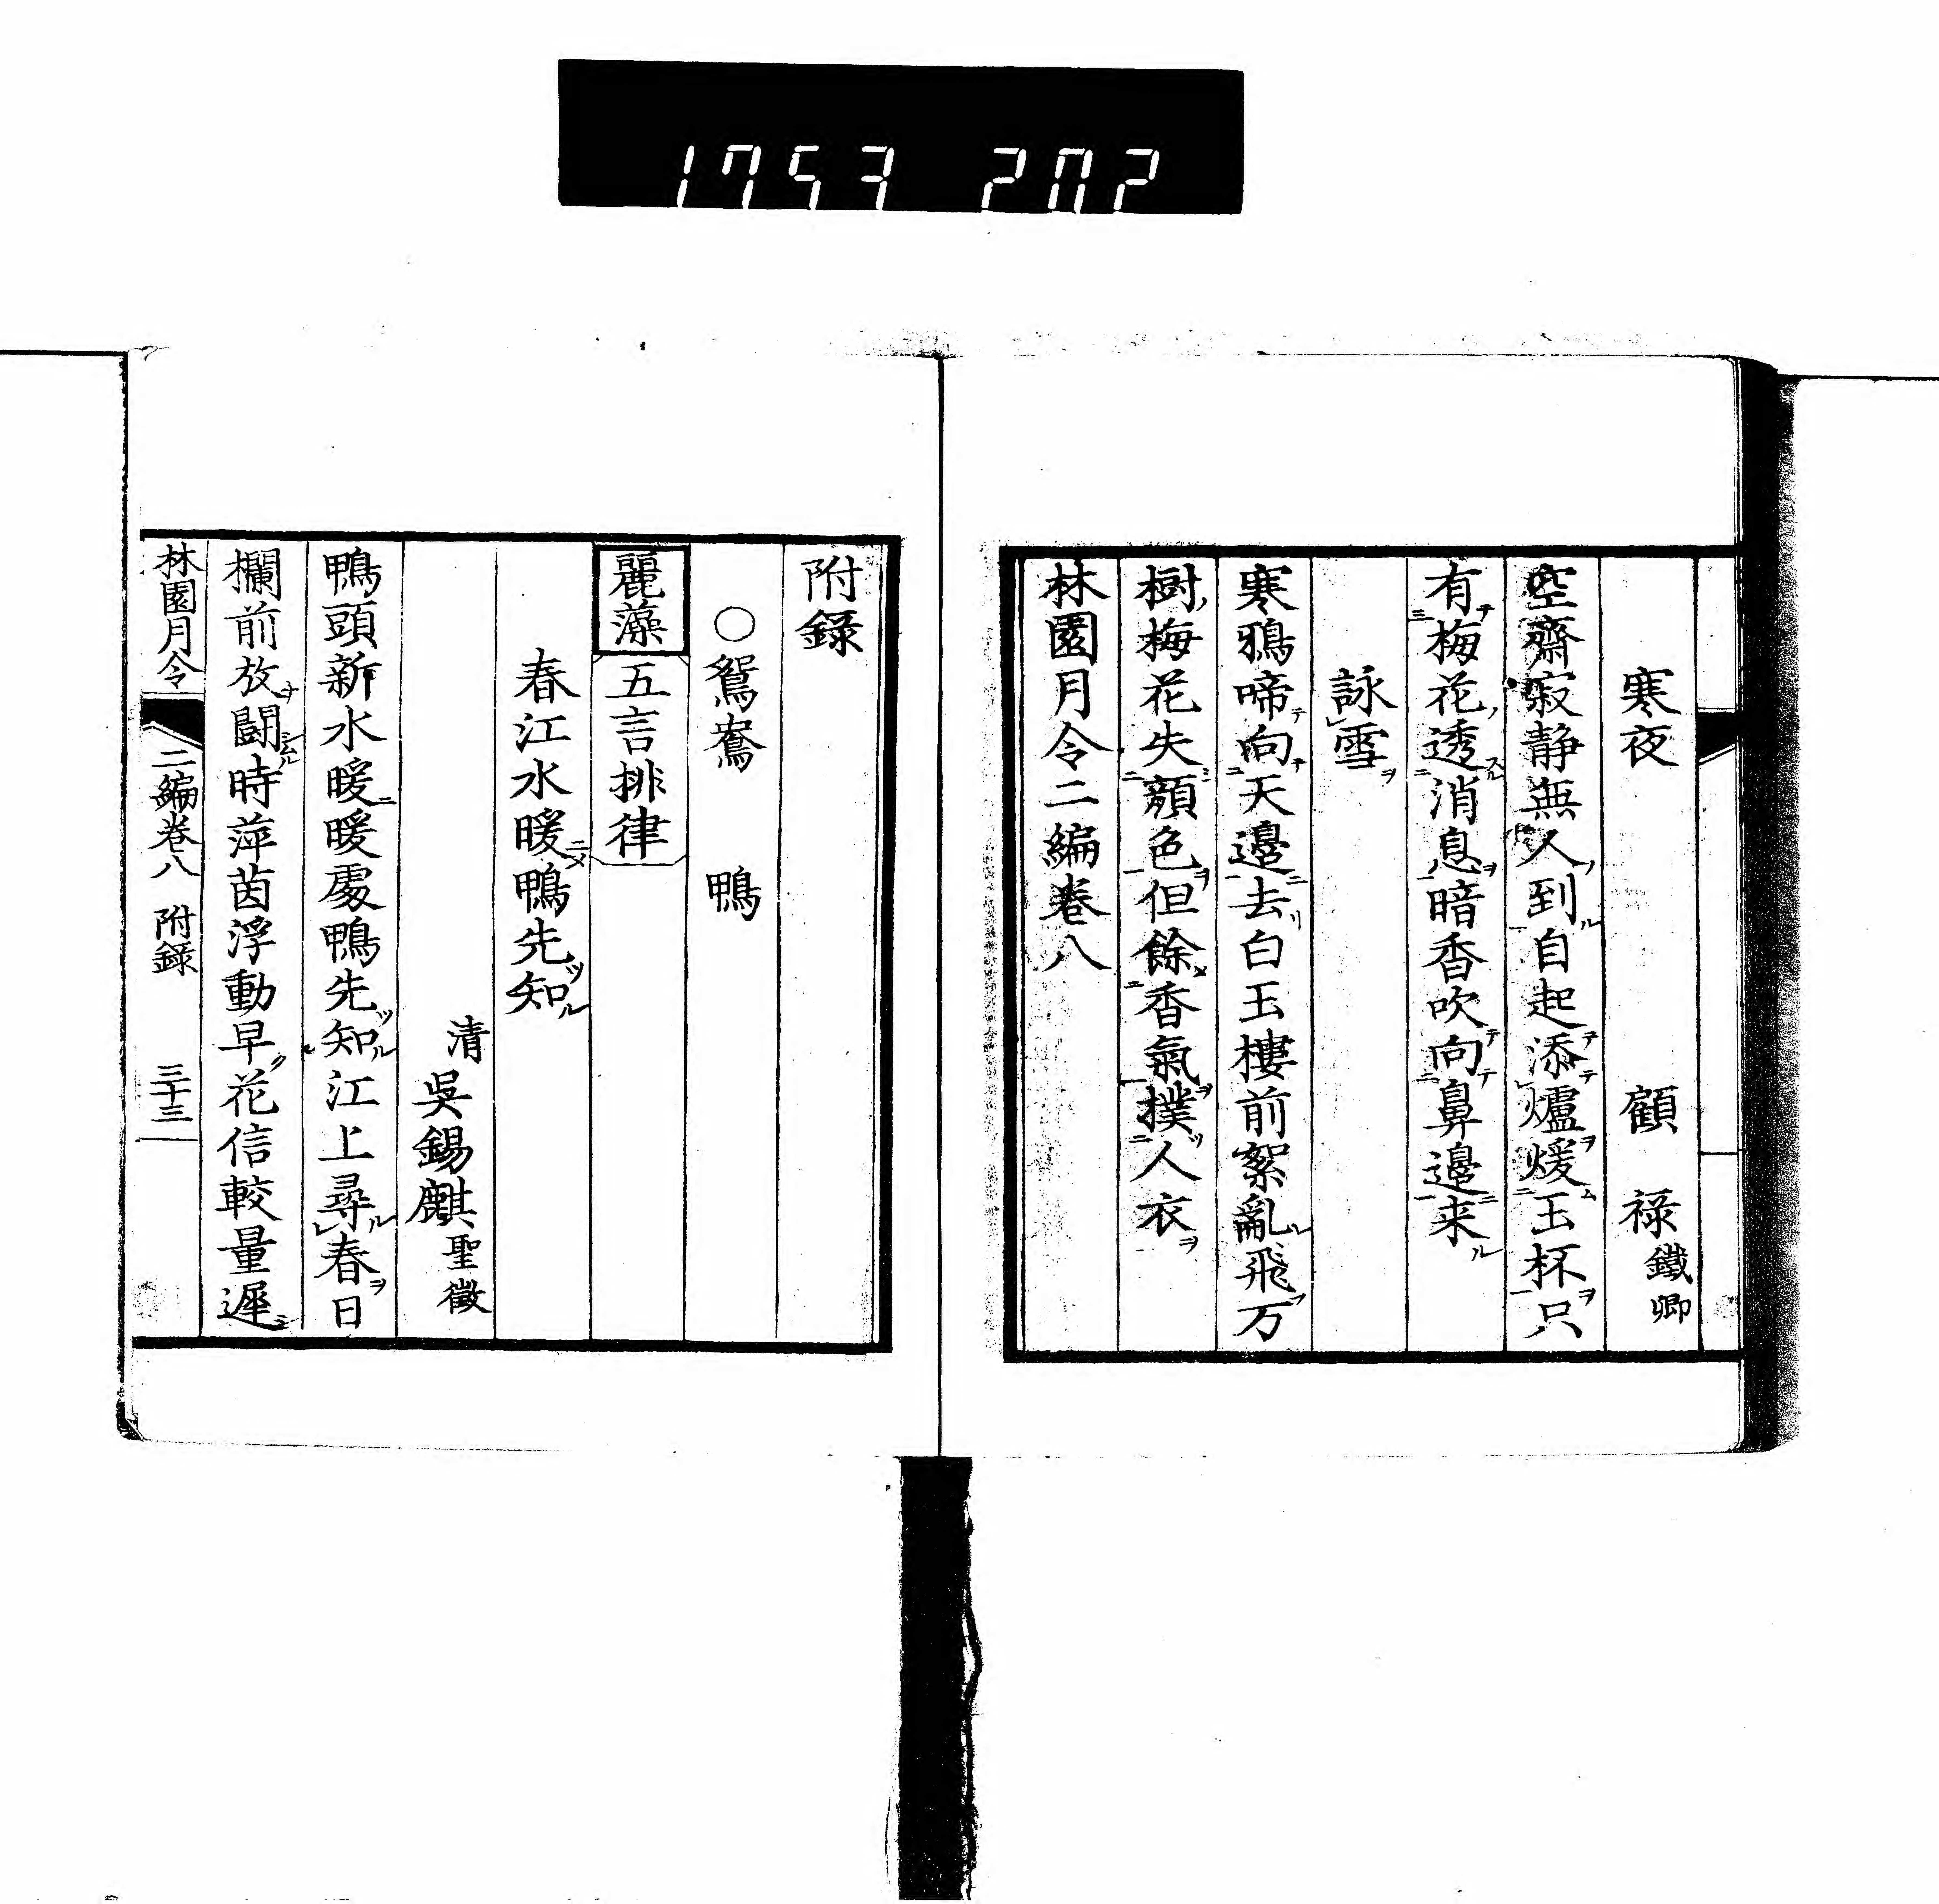 1753 202
寒夜 顧 禄 鐵卿
空齋寂静無人到自起添爐煖玉杯只
有梅花透消息暗香吹向鼻邊来
詠雪
寒鴉啼向天邊去白玉樓前絮亂飛万
樹梅花失顔色但餘香氣撲人衣
林園月令二編卷八
附錄
○鴛鴦 鴨
麗藻 五言排律
春江水暖鴨先知
清 吳錫麒 聖徵
鴨頭新水暖暖處鴨先知江上尋春日
欄前放鬪時萍茵浮動早花信較量遲
林園月令 二編卷八 附錄 三十三